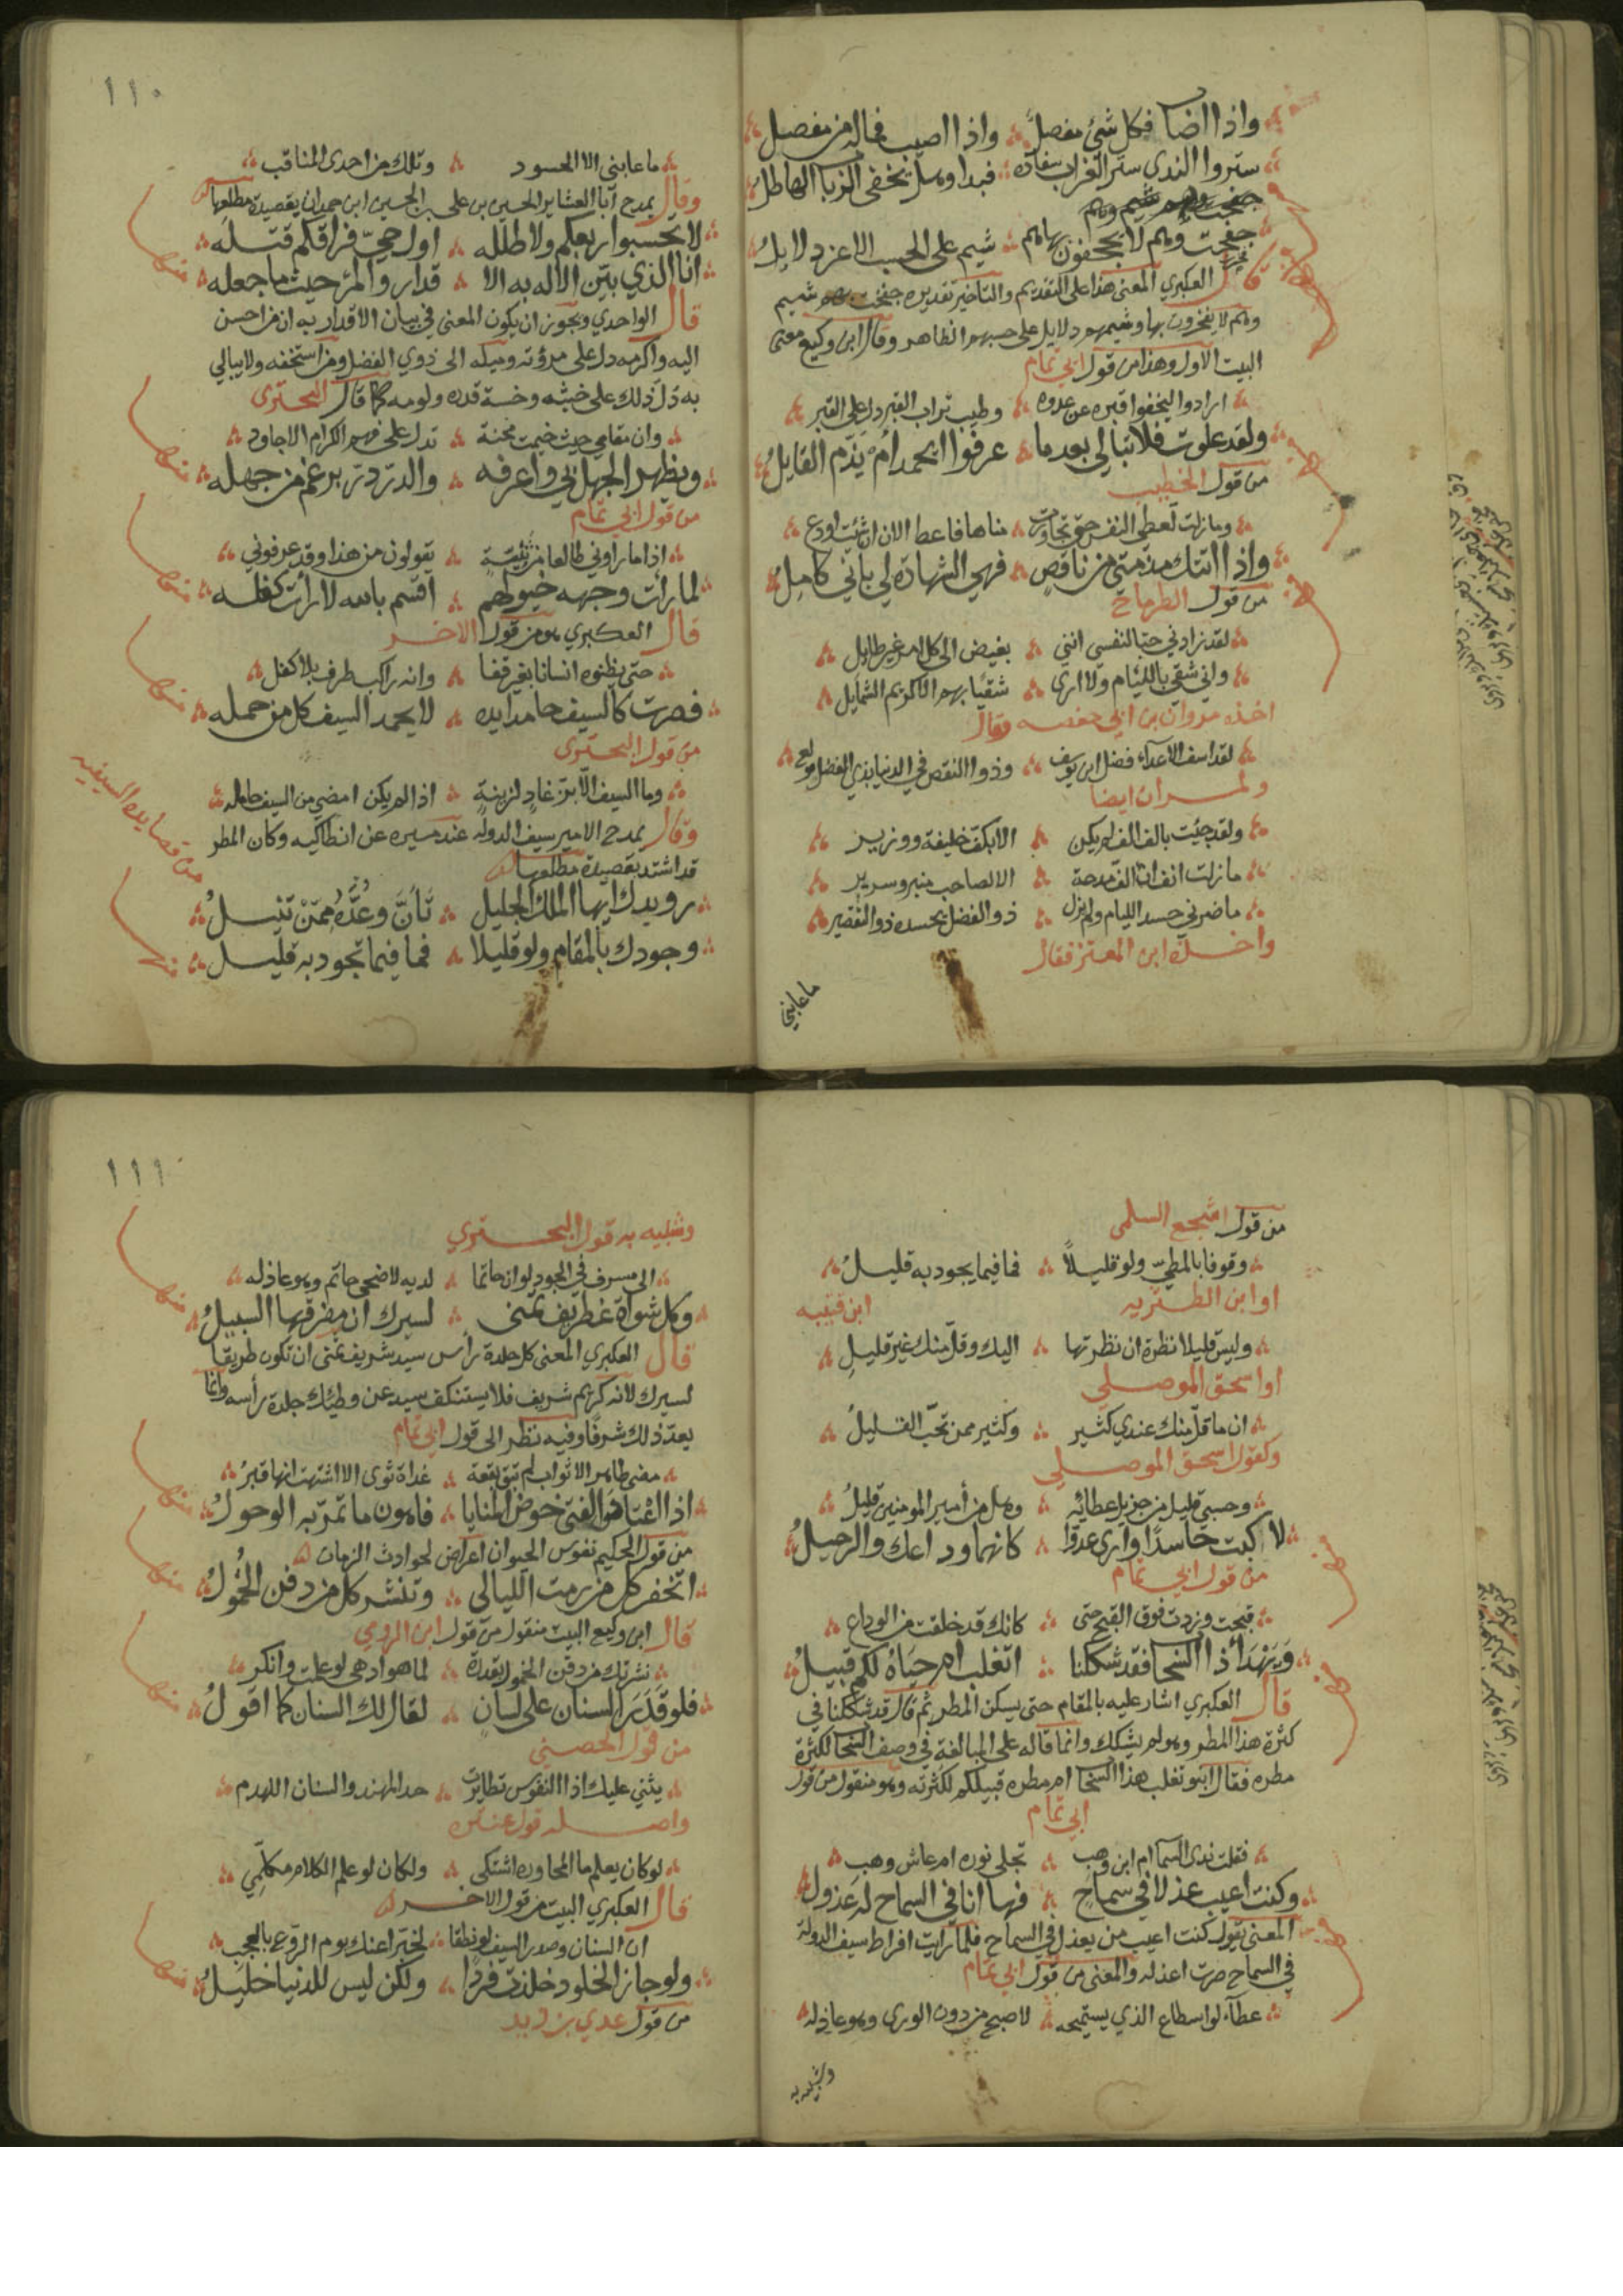 واذا اضا فكل شئ مفصل واذا اصيب فماله من مفصل
ستروا الندى ستر الغراب سفاده فبدا وهل يخفى الربا الهاطل
جفخت وهم لا يجفخون بها بهم شيم على الحسب الاعز دلايل
قال العكبري المعنى هذا على التقديم والتاخير تقديره جفخت بهم شيم
وهم لا يفخرون بها وشيمهم دلايل على حسبهم الظاهر وقال ابن وكيع معنى
البيت الاول وهذا من قول ابي تمام
ارادوا ليخفوا قبره عن عدوه وطيب تراب القبر دل على القبر
ولقد علوت فلا تبالي بعدما عرفوا ايحمد ام يذم القايل
من قول الخطيب
وما زلت تعطي النفس حتى تجاوزت مناها فاعط الان ان شئت اودع
واذا اتتك مذمتي من ناقص فهي الشهادة لي باني كامل
من قول الطرماح
لقد زادني حبا لنفسي انني بغيض الى كل امرء غير طايل
واني شقي باللئام ولا ارى شقيا بهم الا كريم الشمايل
اخذه مروان بن ابي حفصه فقال
لقد اسف الاعداء فضل ابن يوسف وذو النقص في الدنيا بذي الفضل مولع
ولمروان ايضا
ولقد جئت بالف الف لم يكن الا بكف خليفة ووزير
ما زلت انف ان الف مدحة الا لصاحب منبر وسرير
ما ضرني حسد الليام ولم يزل ذو الفضل يحسده ذو التقصير
واخذه ابن المعتز فقال
ما عابني
١١٠
ما عابني الا الحسود وتلك من احدى المناقب
وقال يمدح ابا العشاير الحسين بن علي بن الحسين ابن حمدان بقصيدة مطلعها
لا تحسبوا ربعكم ولا طلله اول حي فراقكم قتله
منها
انا الذي بين الاله به الا قدار والمرء حيث ما جعله
قال الواحدي ويجوز ان يكون المعنى في بيان الاقدار به ان من احسن
اليه واكرمه دل على مروته وميله الى ذوي الفضل ومن استخفه ولا يبالي
به دل ذلك على خبثه وخسة قدره ولومه كما قال البحتري
وان مقامي حيث خيمت محنة تدل على فهم الكرام الاجاود
منها
ويظهر الجهل بي واعرفه والدر در برغم من جهله
من قول ابي تمام
اذا ما راوني طالعا من ثنية يقولون من هذا وقد عرفوني
منها
لما رأت وجهه خيولهم اقسم بالله لا رأت كفله
قال العكبري هو من قول الاخر
حتى يظنوه انسانا بغير قفا وانه راكب طرف بلا كفل
منها
فصرت كالسيف حامدا يده لا يحمد السيف كل من حمله
من قول البحتري
وما السيف الا بز غاد لزينة اذا لم يكن امضى من السيف حامله
وقال يمدح الامير سيف الدوله عند مسيره عن انطاكيه وكان المطر
من قصايده السيفيه
قد اشتد بقصيدة مطلعها
رويدك ايها الملك الجليل تأن وعده مما تنيل
وجودك بالمقام ولو قليلا فما فيما تجود به قليل
منها
من قول اشجع السلمي
وقوفا بالمطي ولو قليلا فما فيما يجود به قليل
او ابن الطثريه ابن قتيبه
وليس قليلا نظرة ان نظرتها اليك وقل منك غير قليل
او اسحق الموصلي
ان ما قل منك عندي كثير وكثير ممن تحب القليل
وكقول اسحق الموصلي
وحسبي قليل من جزيل عطائه وهل من أمير المومنين قليل
لاكبت حاسدا وارى عدوا كانهما وداعك والرحيل
من قول ابي تمام
قبحت وزدت فوق القبح حتى كانك قد خلقت من الوداع
ويهدأ ذا السحا فقد شككنا اتغلب ام حياه لكم قبيل
قال العكبري اشار عليه بالمقام حتى يسكن المطر ثم قال قد شككنا في
كثرة هذا المطر وهو لم يشكك وانما قاله على المبالغة في وصف السحا لكثرة
مطره فقال ابنو تغلب هذا السحا ام مطره قبيلكم لكثرته وهو منقول من قول
ابي تمام
فقلت ندى السما ام ابن وهب تجلى نوره ام عاش وهب
وكنت اعيب عذلا في سماح فها انا في السماح له عذول
المعنى يقول كنت اعيب من يعذل في السماح فلما رايت افراط سيف الدولة
في السماح صرت اعذله والمعنى من قول ابي تمام
عطاء لو اسطاع الذي يستميحه لاصبح من دون الورى وهو عاذله
وشبيه به
١١١
وشبيه به قول البحتري
الى مسرف في الجود لو ان حاتما لديه لاضحى حاتم وهو عاذله
منها
وكل شواة غطريف تمنى لسيرك ان مفرقها السبيل
قال العكبري المعنى كل جلدة رأس سيد شريف تمنى ان تكون طريقا
لسيرك لانه كريم شريف فلا يستنكف سيد عن وطئك جلدة رأسه وانما
يعد ذلك شرفا وفيه نظر الى قول ابي تمام
مضى طاهر الاثواب لم تبق بقعة غداة ثوى الا اشتهت انها قبر
منها
اذا اعتاد الفتى خوض المنايا فاهون ما تمر به الوحول
من قول الحكيم نفوس الحيوان اعراض لحوادث الزمان
منها
اتخفر كل من رمت الليالي وتنشر كل من دفن الخمول
قال ابن وكيع البيت منقول من قول ابن الرومي
نشرتك من دفن الخمول بقدرة لما هو ادهى لو علمت وانكر
منها
فلو قدر السنان على لسان لقال لك السنان كما اقول
من قول الحصيني
يثني عليك اذا النفوس تطايرت حد المهند والسنان اللهدم
واصله قول عنتره
لو كان يعلم ما المحاوره اشتكى ولكان لو علم الكلام مكلمي
قال العكبري البيت من قول الاخر
ان السنان وصدر السيف لو نطقا لخبرا عنك يوم الروع بالعجب
منها
ولو جاز الخلود خلدت فردا ولكن ليس للدنيا خليل
من قول عدي بن زيد